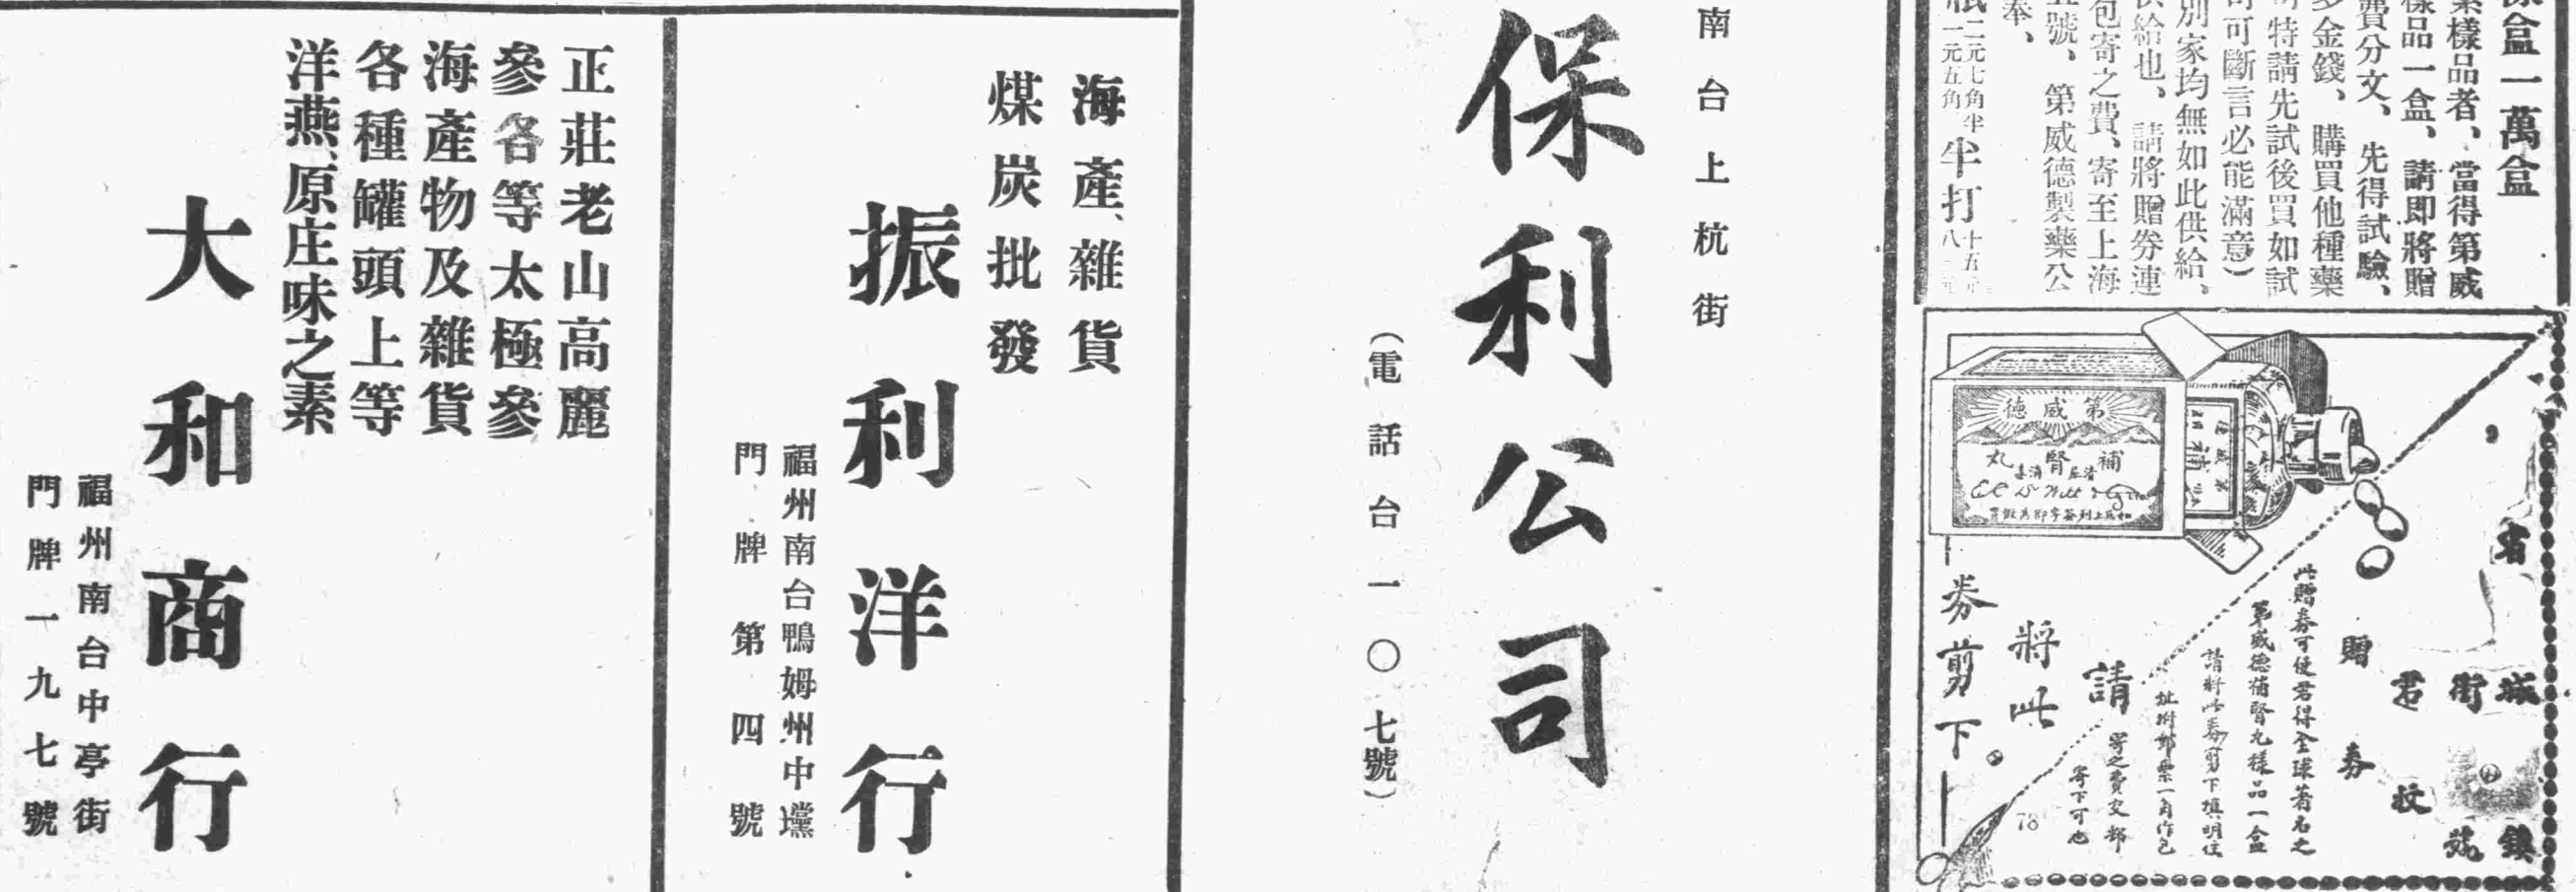 盒一萬盒
樣品者、當得第威
樣品一盒、請即將贈
費分文、先得試驗、
多金錢、購買他種藥
特請先試後買如試
可斷言必能滿意）
別家均無如此供給、
供給也、請將贈券連
包寄之費、寄至上海
號、第威德製藥公
奉、
二元七角半
一元五角
半打
十五元
八
第威德
補腎丸
券剪下
將此
請
贈券
此贈券可使君得全球著名之
第威德補腎丸樣品一盒
請將此券剪下填明住
址附郵票一角作包
寄之費交郵
寄下可也
省
城
鎮
街
君
78
南台上杭街
保利公司
（電話台一〇七號）
海產、雜貨
煤炭批發
振利洋行
福州南台鴨姆州中壋
門牌第四號
正莊老山高麗
參各等太極參
海產物及雜貨
各種罐頭上等
洋燕、原庄味之素
大和商行
福州南台中亭街
門牌一九七號